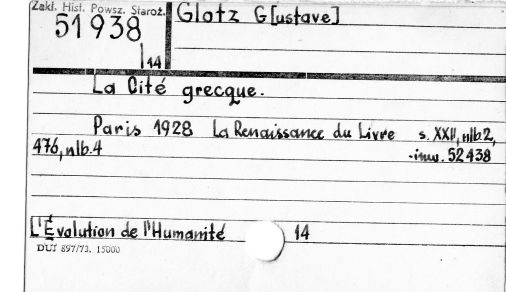 Zakł. Hist. Powsz. Staroż.
Glotz G[ustave]
51938
14
La Cité grecque.
Paris 1928 La Renaissance du Livre s. XXII, nlb 2,
476, nlb. 4 -inw. 52438
L'Évolution de l'Humanité 14
DUJ 897/73. 15000